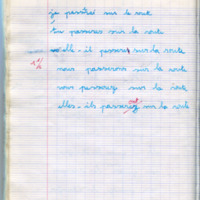 je passerai sur la route
tu passeras sur la route
elle - il passera sur la route
nous passerons sur la route
vous passerez sur la route
elles - ils passerez ont sur la route